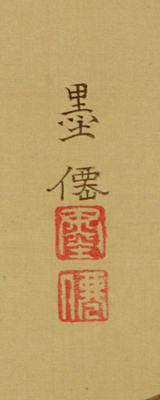 墨僊
墨
僊